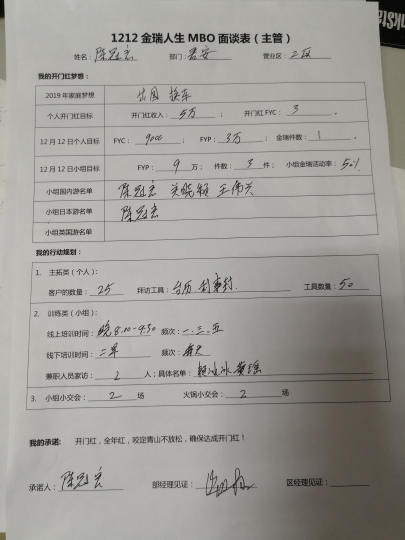 1212 金瑞人生 MBO 面谈表（主管）
姓名：陈冠宏 部门：君安 营业区：二区
我的开门红梦想：
2019 年家庭梦想 出国 换车
个人开门红目标 开门红收入：5万 ； 开门红 FYC：3 。
12 月 12 日个人目标 FYC：9000 ； FYP：3万 ； 金瑞件数：1 。
12 月 12 日小组目标 FYP：9 万； 件数：3 件； 小组金瑞活动率：50%
小组国内游名单 陈冠宏 王伟兴
小组日本游名单 陈冠宏
小组英国游名单
我的行动规划：
1. 主拓类（个人）：
客户的数量：25 拜访工具：台历 利事封 工具数量：50
2. 训练类（小组）：
线上培训时间：晚8:10-9:30 频次：一.三.五
线下培训时间：二早 频次：每天
兼职人员家访：2 人；具体名单：
3. 小组小交会：2 场 火锅小交会：2 场
我的承诺： 开门红，全年红，咬定青山不放松，确保达成开门红！
承诺人：陈冠宏 部经理见证： 区经理见证：